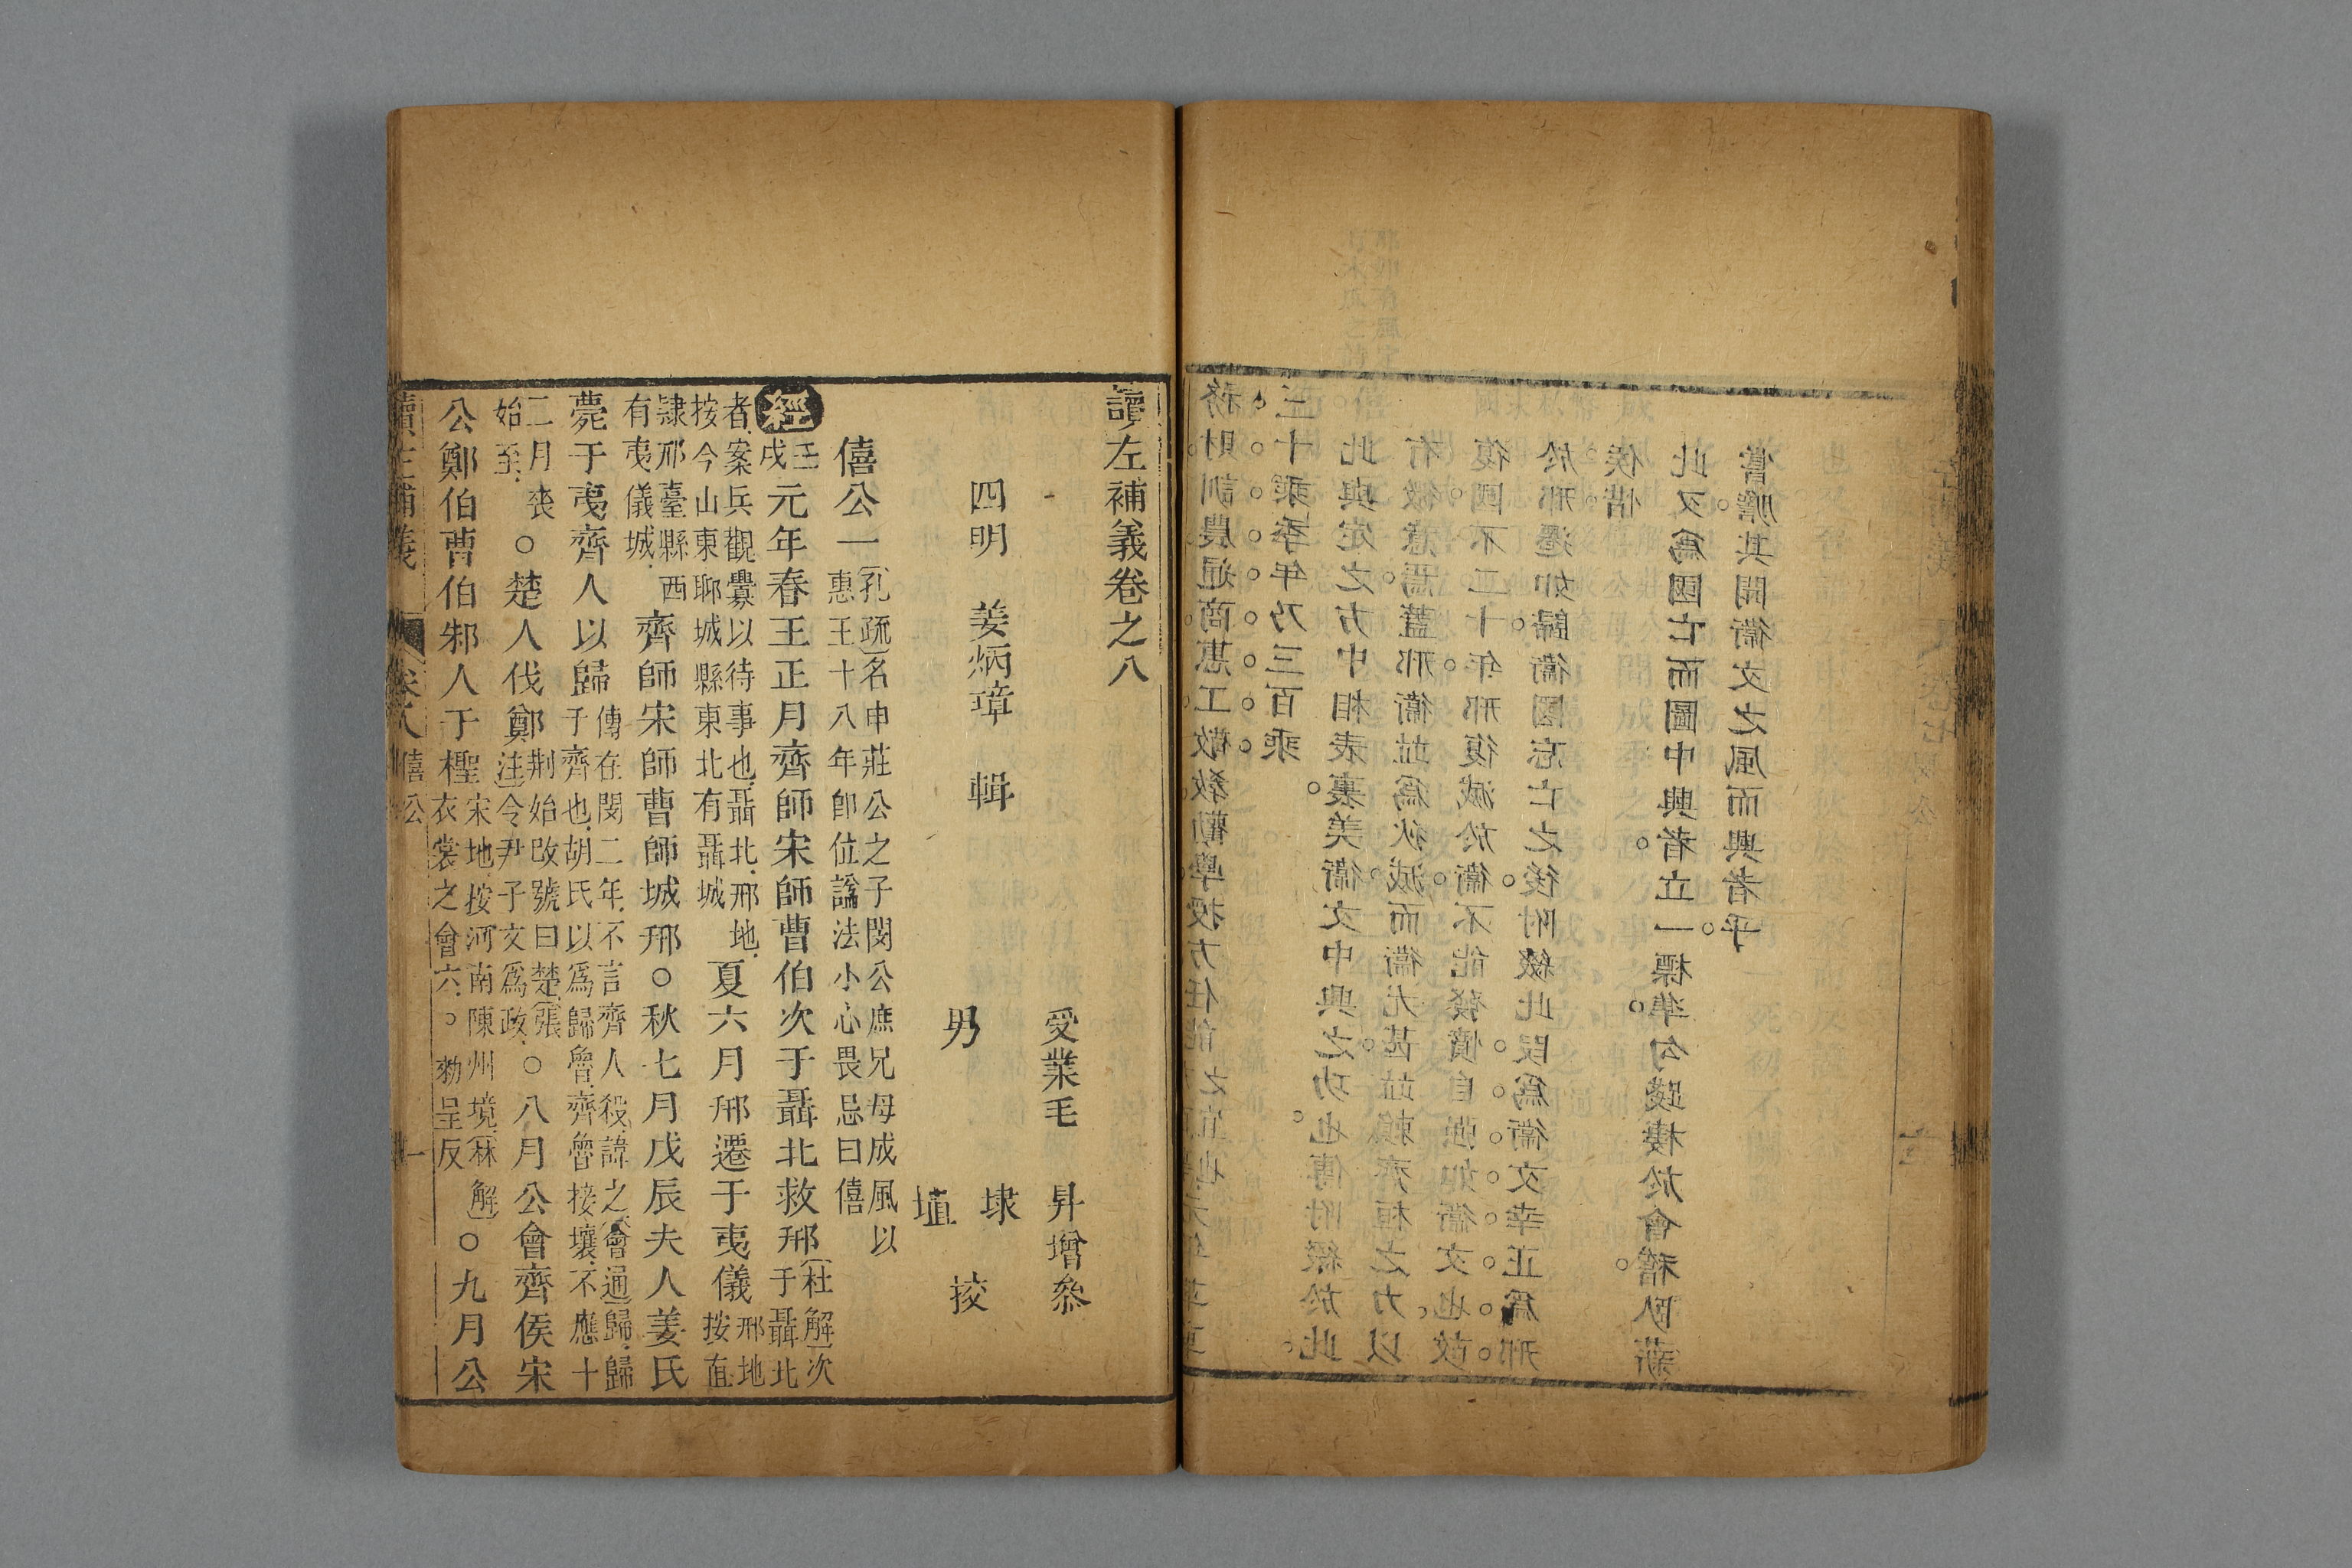 務財訓農通商惠工敬教勸學授方任能之宜也元年革車
三十乘季年乃三百乘
此與定之方中相表裏美衞文中興之功也傳附綴於此
有微意焉蓋邢衞並爲狄滅而衞尤甚並賴齊桓之力以
復國不二十年邢復滅於衞不能發憤自強如衞文也故
於邢遷如歸衞國忘亡之後附綴此段爲衞文幸正爲邢
侯惜
此又爲國亡而圖中興者立一標準勾踐棲於會稽臥薪
嘗膽其聞衞文之風而興者乎
讀左補義卷之八
受業毛 昇增參
四明 姜炳璋 輯
男 埭 埴 挍
僖公一 孔疏名申莊公之子閔公庶兄母成風以惠王十八年卽位謚法小心畏忌曰僖
經 壬戌 元年春王正月齊師宋師曹伯次于聶北救邢 杜解次于聶北
者案兵觀釁以待事也聶北邢地按今山東聊城縣東北有聶城 夏六月邢遷于夷儀 邢地按直
隸邢臺縣西有夷儀城 齊師宋師曹師城邢○秋七月戊辰夫人姜氏
薨于夷齊人以歸 傳在閔二年不言齊人殺諱之會通歸歸于齊也胡氏以爲歸魯齊魯接壤不應十
二月喪始至 ○楚人伐鄭 荆始改號曰楚張注令尹子文爲政 ○八月公會齊侯宋
公鄭伯曹伯邾人于檉 宋地按河南陳州境林解衣裳之會六 ○檉勑呈反 ○九月公
讀左補義 卷八 僖公 一